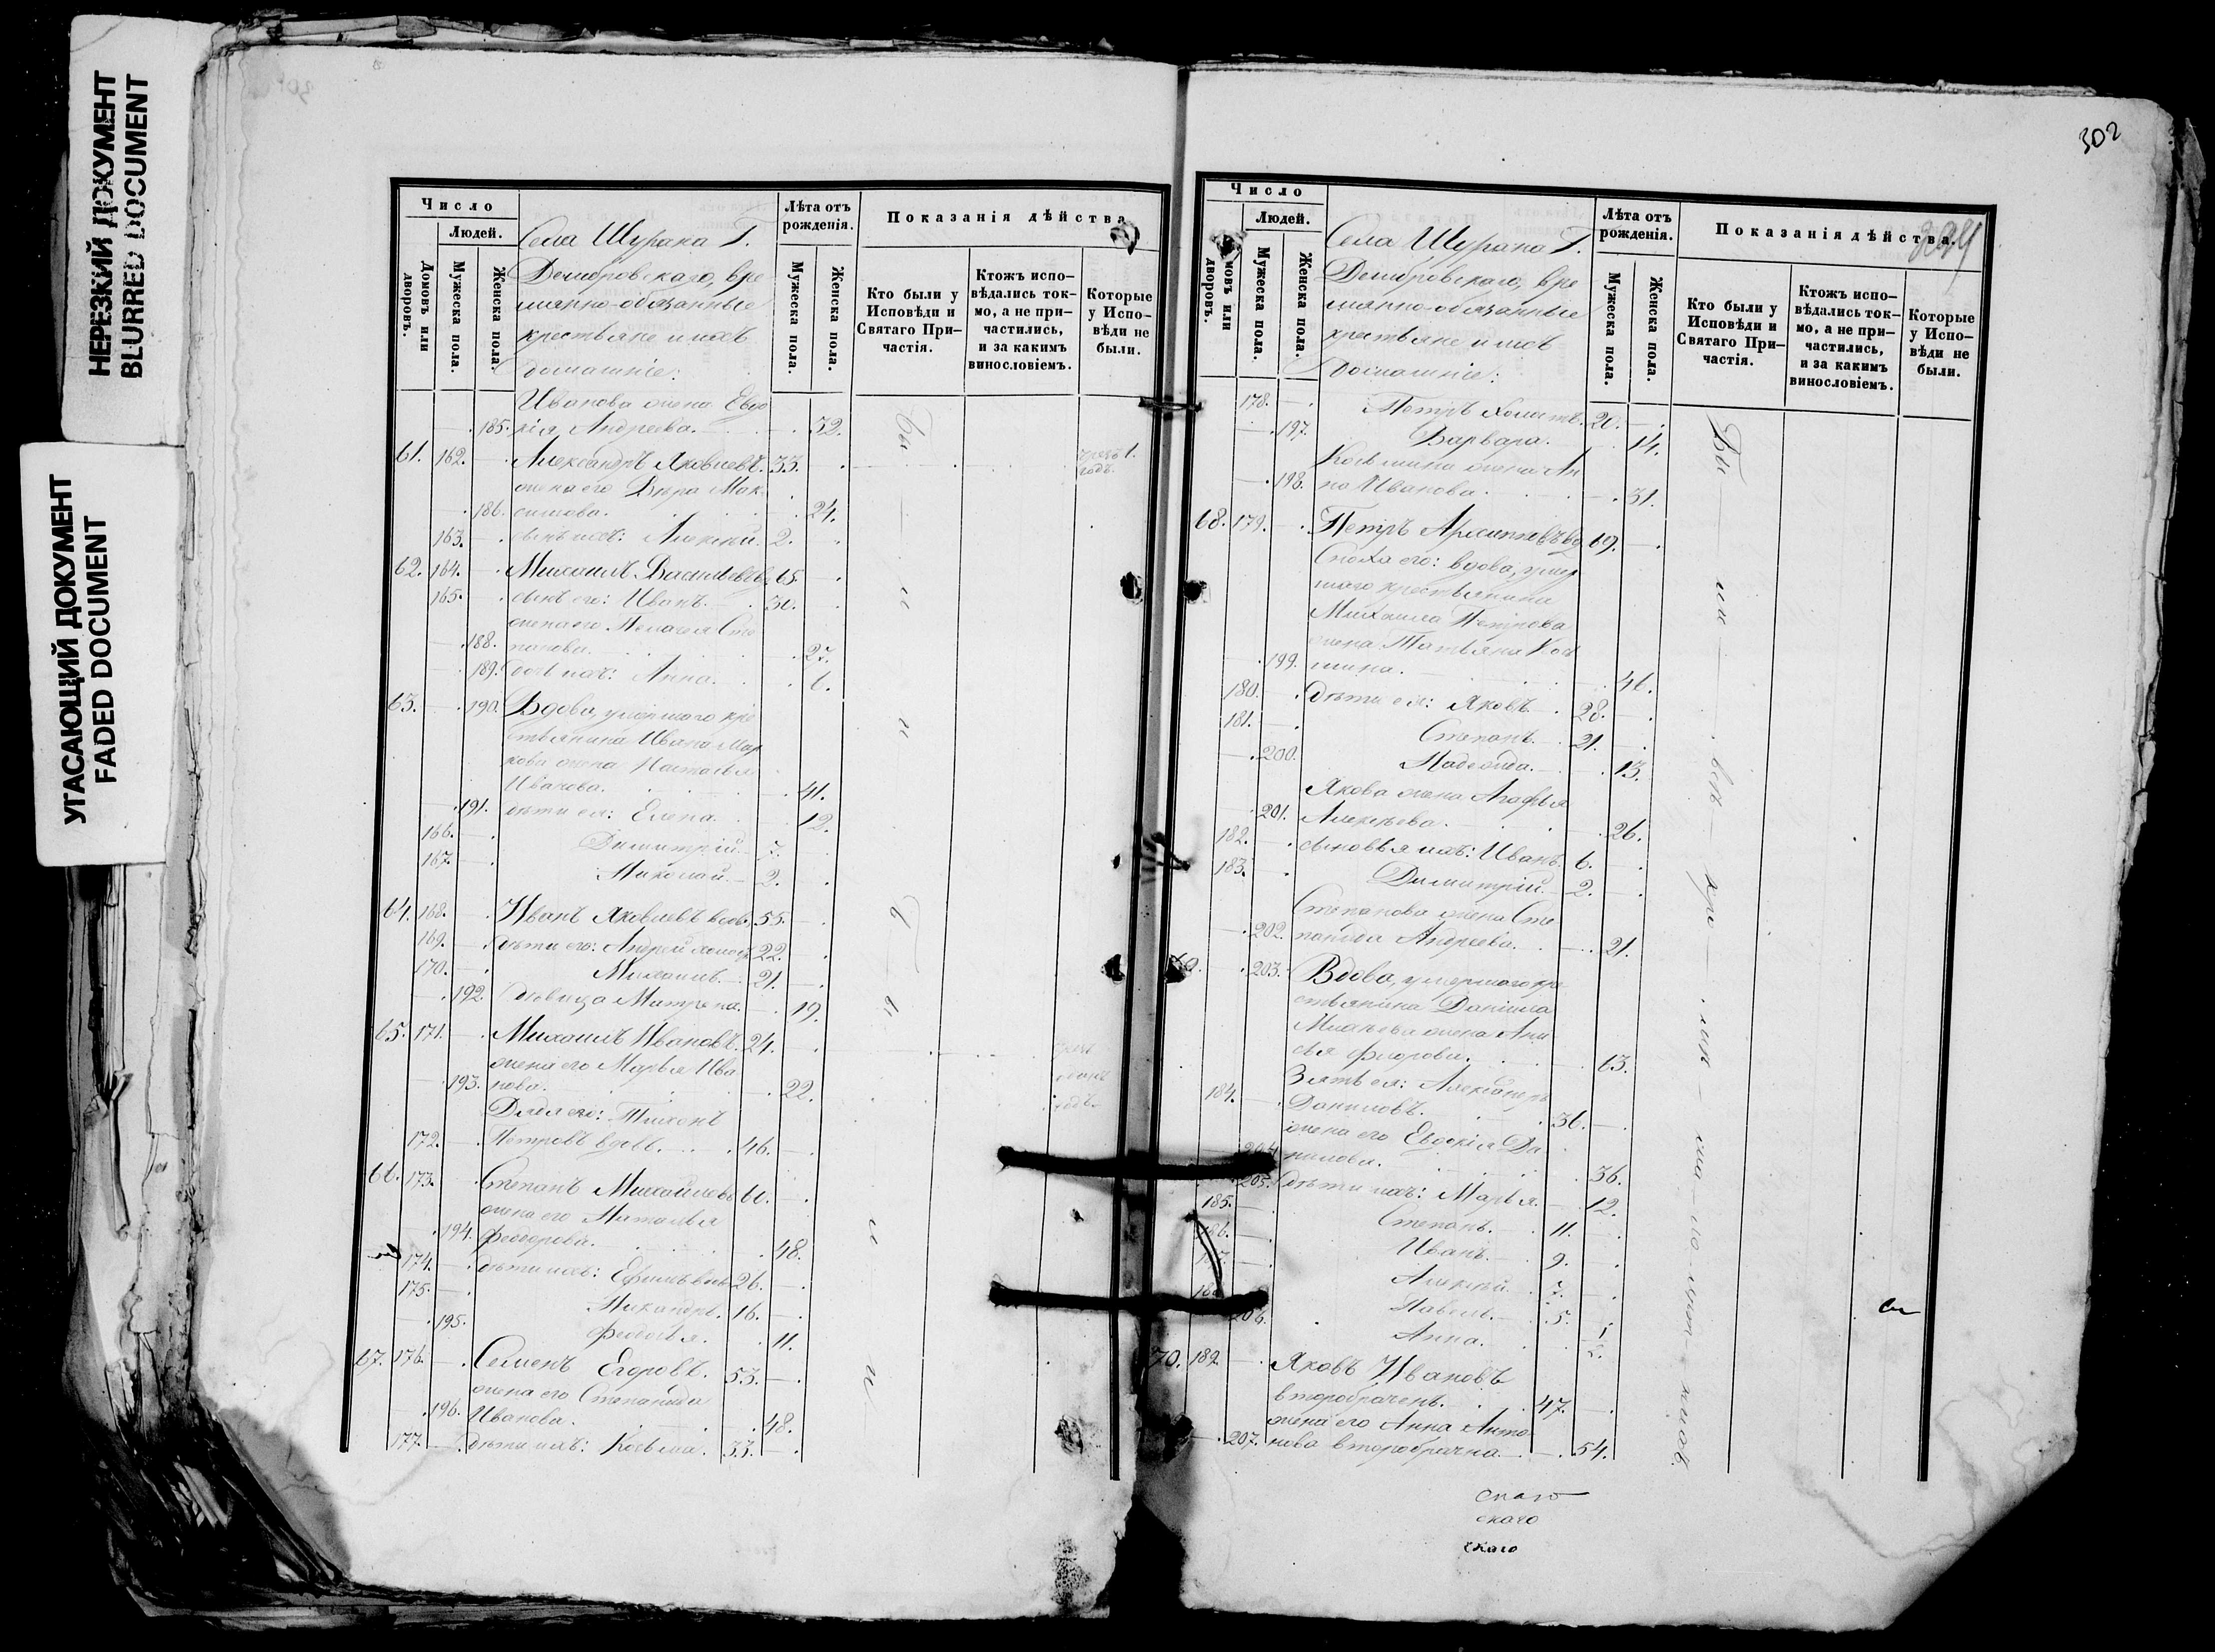 НЕРЕЗКИЙ ДОКУМЕНТ
BLURRED DOCUMENT
УГАСАЮЩИЙ ДОКУМЕНТ
FADED DOCUMENT
Число
Людей.
Домовъ или дворовъ.
Мужеска пола.
Женска пола.
Села Шурана Г.
вре
мянно-обязанные
крестьяне и ихъ
домашніе:
Лѣта отъ рожденія.
Мужеска пола.
Женска пола.
Показанія дѣйства
Кто были у Исповѣди и Святаго При-частія.
Ктожъ испо-вѣдались ток-мо, а не при-частились, и за какимъ винословіемъ.
Которые у Испо-вѣди не были.
Иванова жена Евдо
185. кія Андреева. 32.
61. 162. Александръ Яковлевъ. 33.
жена его Вѣра Мак
186. симова. 24.
163. сынъ ихъ: Алексѣй. 2.
62. 164. Михаилъ Васильевъ 65.
165. сынъ его: Иванъ. 30.
жена его Пелагея Сте
188. панова. 27.
189. дочь ихъ: Анна. 6.
63. 190. Вдова, умершаго кре
стьянина Ивана Мар
кова жена Наталья
Иванова. 41.
191. дѣти ея: Елена. 12.
166. Димитрій. 7.
167. Николай. 2.
64. 168. Иванъ Яковлевъ вдовъ 55.
169. дѣти его: Андрей холостъ 22.
170. Михаилъ. 21.
192. дѣвица Матрена. 19.
65. 171. Михаилъ Ивановъ. 24.
жена его Марья Ива
193. нова. 22.
Дядя его: Тихонъ
172. Петровъ вдовъ. 46.
66. 173. Степанъ Михайловъ 60.
жена его Наталья
194. Феодорова. 48.
174. дѣти ихъ: Ефимъ 26.
175. Никандръ. 16.
195. Феодосья. 11.
67. 176. Семенъ Егоровъ. 53.
жена его Степанида
196. Иванова. 48.
177. дѣти ихъ: Косьма. 33.
302
Число
Людей.
мовъ или дворовъ.
Мужеска пола.
Женска пола.
Села Шурана Г.
вре
мянно-обязанные
крестьяне и ихъ
домашніе:
Лѣта отъ рожденія.
Мужеска пола.
Женска пола.
Показанія дѣйства.
Кто были у Исповѣди и Святаго При-частія.
Ктожъ испо-вѣдались ток-мо, а не при-частились, и за какимъ винословіемъ.
Которые у Испо-вѣди не были.
178. Петръ холостъ. 20.
197. Варвара. 14.
Косьмина жена Ан
198. на Иванова. 31.
68. 179. Петръ Архиповъ вд 69.
Сноха его: вдова, умер
шаго крестьянина
Михаила Петрова
жена Татьяна Кось
199. мина. 46.
180. дѣти ея: Яковъ. 28.
181. Степанъ. 21.
200. Надежда. 13.
Якова жена Агафья
201. Алексѣева. 26.
182. сыновья ихъ: Иванъ 6.
183. Димитрій 2.
Степанова жена Сте
202. панида Андреева. 21.
203. Вдова, умершаго кре
стьянина Даніила
жена Ани
сья Федорова. 63.
Зять ея: Александръ
184. Даниловъ. 36.
жена его Евдокія Да
204 нилова. 36.
205. дѣти ихъ: Марья. 12.
185. Степанъ. 11.
186. Иванъ. 9.
187. Алексѣй. 7.
188 Павелъ. 5.
206. Анна.
70. 189. Яковъ Ивановъ
второбраченъ. 47.
жена его Анна Анто
207. нова второбрачна. 54.
скаго
скаго
скаго